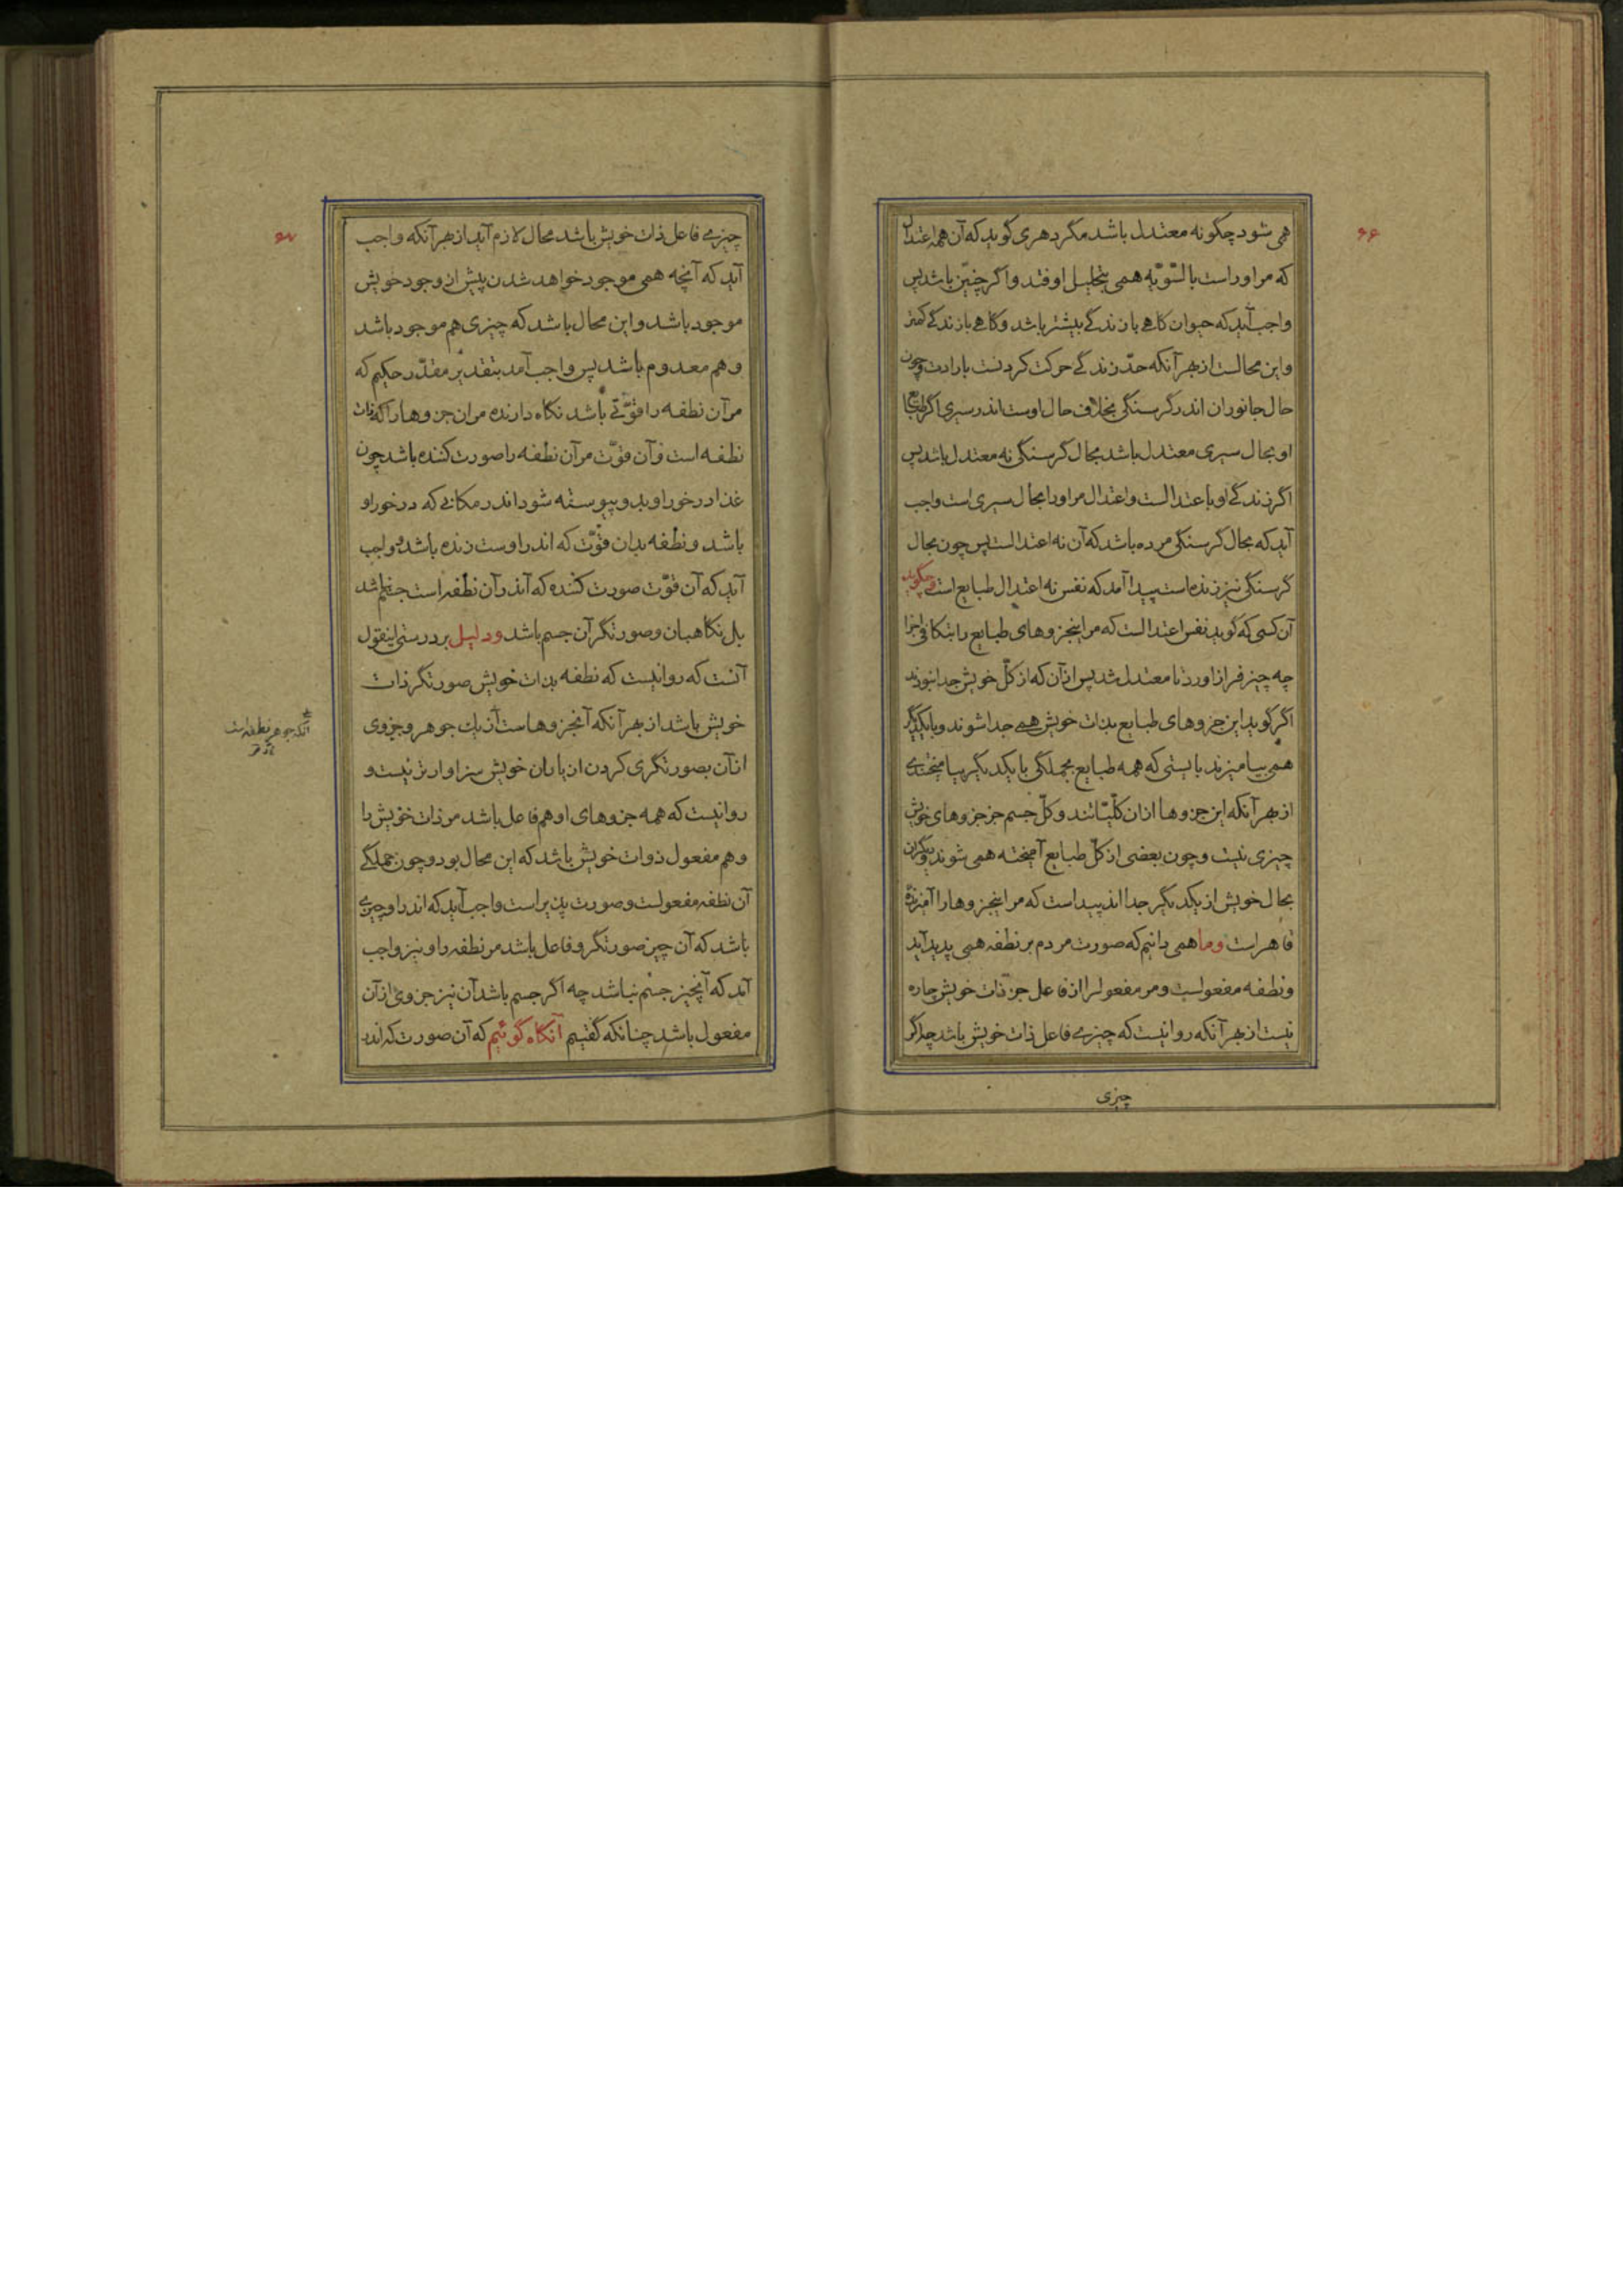 ۶۶
همی شود چگونه معتدل باشد مگر دهری گوید که آن همه اعتدال
که مر او راست بالسّویّه همی بتحلیل اوفتد و اگر چنین باشد پس
واجب آید که حیوان گاهی با زندگی بیشتر باشد و گاهی با زندگی کمتر
و این محالست از بهر آنکه حدّ زندگی حرکت کردنست بارادت و چون
حال جانوران اندر گرسنگی بخلاف حال اوست اندر سیری اگر طبایع
او بحال سیری معتدل باشد بحال گرسنگی نه معتدل باشد پس
اگر زندگی او باعتدالست و اعتدال مر او را بحال سیری است واجب
آید که بحال گرسنگی مرده باشد که آن نه اعتدالست پس چون بحال
گرسنگی نیز زنده است پیدا آمد که نفس نه اعتدال طبایع است و چگوید
آن کسی که گوید نفس اعتدالست که مر اینجزوهای طبایع را بتکافی اجزا
چه چیز فراز آورد تا معتدل شد پس از آن که از کلّ خویش جدا نبودند
اگر گوید این جزوهای طبایع بذات خویش همی جدا شوند و با یکدیگر
همی بیامیزند بایستی که همه طبایع بجملگی با یکدیگر بیامیختندی
از بهر آنکه این جزوها از ان کلّیّاتند و کلّ جسم جز جزوهای خویش
چیزی نیست و چون بعضی از کلّ طبایع آمیخته همی شوند و دیگران
بحال خویش از یکدیگر جدا اند پیداست که مر اینجزوها را آمیزنده
قاهراست وما همی دانیم که صورت مردم بر نطفه همی پدید آید
و نطفه مفعولست و مر مفعولرا از فاعل جز ذات خویش چاره
نیست از بهر آنکه روا نیست که چیزی فاعل ذات خویش باشد چه اگر
چیزی
۶۷
چیزی فاعل ذات خویش باشد محال لازم آید از بهر آنکه واجب
آید که آنچه همی موجود خواهد شدن پیش از وجود خویش
موجود باشد و این محال باشد که چیزی هم موجود باشد
و هم معدوم باشد پس واجب آمد بتقدیر مقدّر حکیم که
مر آن نطفه را قوّتی باشد نگاه دارنده مر ان جزوها را که ذات
نطفه است و آن قوّت مر آن نطفه را صورت کننده باشد چون
غذا درخور او بدو پیوسته شود اندر مکانی که درخور او
باشد و نطفه بدان قوّت که اندر اوست زنده باشد و واجب
آید که آن قوّت صورت کننده که اندر آن نطفه است جسم نباشد
بل نگاهبان و صورتگر آن جسم باشد ودلیل بر درستی اینقول
آنست که روا نیست که نطفه بذات خویش صورتگر ذات
خویش باشد از بهر آنکه آنجزوهاست از یک جوهر و جزوی
از آن بصورتگری کردن از یاران خویش سزاوارتر نیست و
روا نیست که همه جزوهای او هم فاعل باشد مر ذات خویش را
و هم مفعول ذوات خویش باشد که این محال بود و چون جملگی
آن نطفه مفعولست و صورت پذیر است واجب آید که اندر او چیزی
باشد که آن چیز صورتگر و فاعل باشد مر نطفه را و نیز واجب
آید که آنچیز جسم نباشد چه اگر جسم باشد آن نیز جزوی از آن
مفعول باشد چنانکه گفتیم آنگاه گوئیم که آن صورت که اندر
آنکه جوهر نطفه است